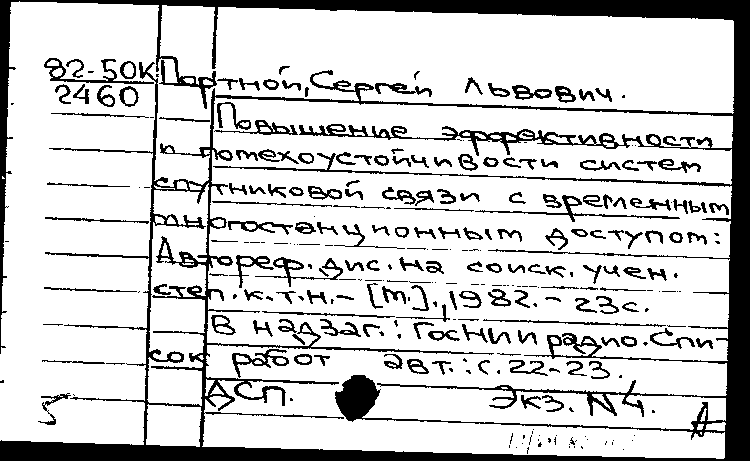 82-50К
2460
Портной, Сергей Львович.
Повышение эффективности
и помехоустойчивости систем
спутниковой связи с временным
многостанционным доступом:
Автореф. дис. на соиск. учен.
степ. к.т.н. - [М.], 1982. - 23с.
В надзаг.: ГосНИИ радио. Спи-
сок работ авт.: с. 22-23.
ДСП. Экз. N4.
5 А